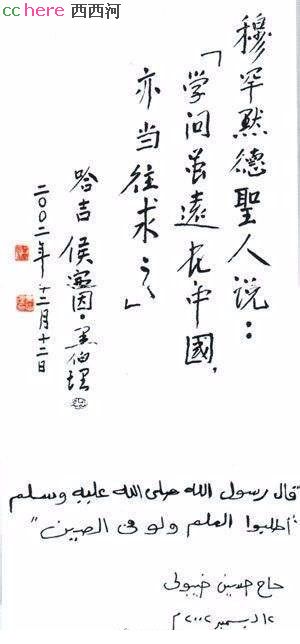 cchere 西西河
穆罕默德聖人说：
「学问虽遠在中國，
亦当往求之」
哈吉 侯賽因·黑伯理
二〇〇二年十二月十二日
"قال رسول الله صلى الله عليه وسلم
"اطلبوا العلم ولو فى الصين"
حاج حسين
١٢ دسمبر ٢٠٠٢ م